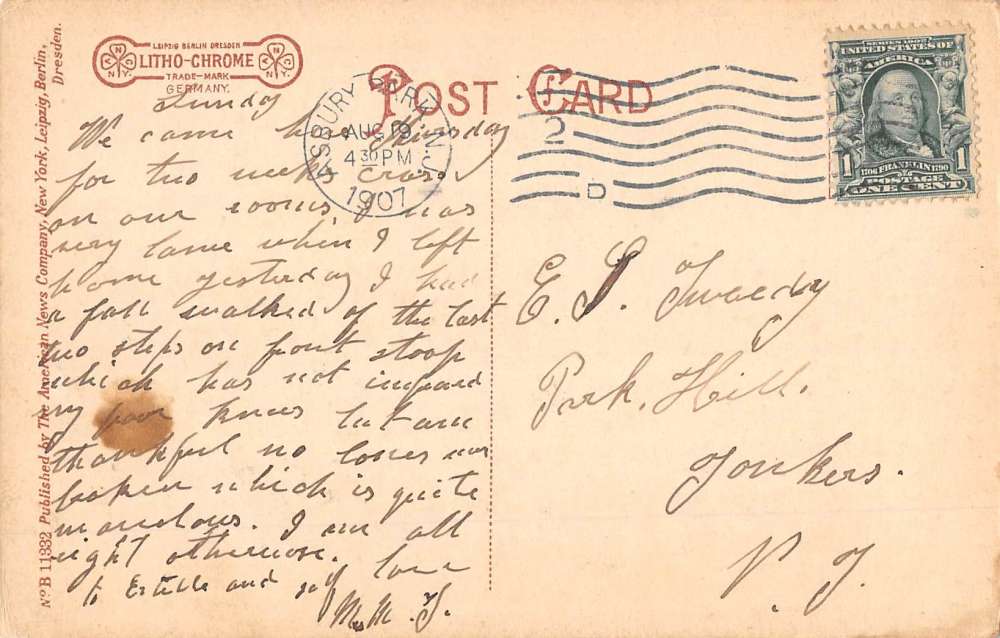 LEIPZIG BERLIN DRESDEN
LITHO-CHROME
TRADE-MARK
GERMANY.
N.Y.
N.Y.
POST CARD
ASBURY PARK, N.J.
AUG 19
4 30 PM
1907
2
D
SERIES 1902
UNITED STATES OF
AMERICA
1706 FRANKLIN 1790
POSTAGE
1 ONE CENT 1
Sunday
We came here Thursday
for two weeks
on our rooms, I was
very lame when I left
home yesterday I had
a fall walked of the last
two steps on front stoop
which has not
my poor knees but am
thankful no bones are
broken which is quite
I am all
right otherwise.
love
to Estelle and
M.
E. S. Tweedy
Park. Hill.
Yonkers.
N. Y.
No B 11932 Published by The American News Company, New York, Leipzig, Berlin,
Dresden.